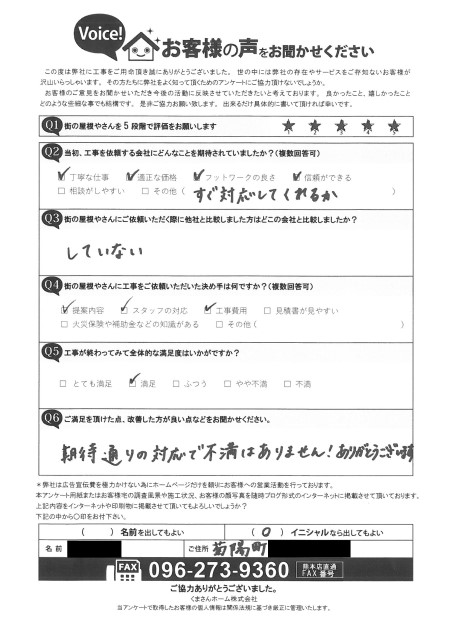 Voice!
お客様の声をお聞かせください
この度は弊社に工事をご用命頂き誠にありがとうございました。世の中には弊社の存在やサービスをご存知ないお客様が
沢山いらっしゃいます。その方たちに弊社をよく知って頂くためのアンケートにご協力頂けないでしょうか。
お客様のご意見をお聞かせいただき今後の活動に反映させていただきたいと考えております。良かったこと、嬉しかったこと
どのような些細な事でも結構です。是非ご協力お願い致します。出来るだけ具体的に書いて頂ければ幸いです。
Q1 街の屋根やさんを5段階で評価をお願いします 1 2 3 4 5
Q2 当初、工事を依頼する会社にどんなことを期待されていましたか?(複数回答可)
☑丁寧な仕事 ☑適正な価格 ☑フットワークの良さ ☑信頼ができる
□相談がしやすい □その他( すぐ対応してくれるか )
Q3 街の屋根やさんにご依頼いただく際に他社と比較しました方はどこの会社と比較しましたか?
していない
Q4 街の屋根やさんに工事をご依頼いただいた決め手は何ですか?(複数回答可)
☑提案内容 ☑スタッフの対応 ☑工事費用 □見積書が見やすい
□火災保険や補助金などの知識がある □その他( )
Q5 工事が終わってみて全体的な満足度はいかがですか?
□とても満足 ☑満足 □ふつう □やや不満 □不満
Q6 ご満足を頂けた点、改善した方が良い点などをお聞かせください。
期待通りの対応で不満はありません!ありがとうございます
*弊社は広告宣伝費を極力かけない為にホームページだけを頼りにお客様への営業活動を行っております。
本アンケート用紙またはお客様宅での調査風景や施工状況、お客様の顔写真を随時ブログ形式のインターネットに掲載させて頂いております。
上記内容をインターネットや印刷物に掲載させて頂いてもよろしいでしょうか?
下記の中から〇印をお付下さい。
( )名前を出してもよい (○)イニシャルなら出してもよい
名前 ご住所 菊陽町
FAX 096-273-9360 熊本店直通 FAX番号
ご協力ありがとうございました。
くまさんホーム株式会社
当アンケートで取得したお客様の個人情報は関係法規に基づき厳正に管理いたします。